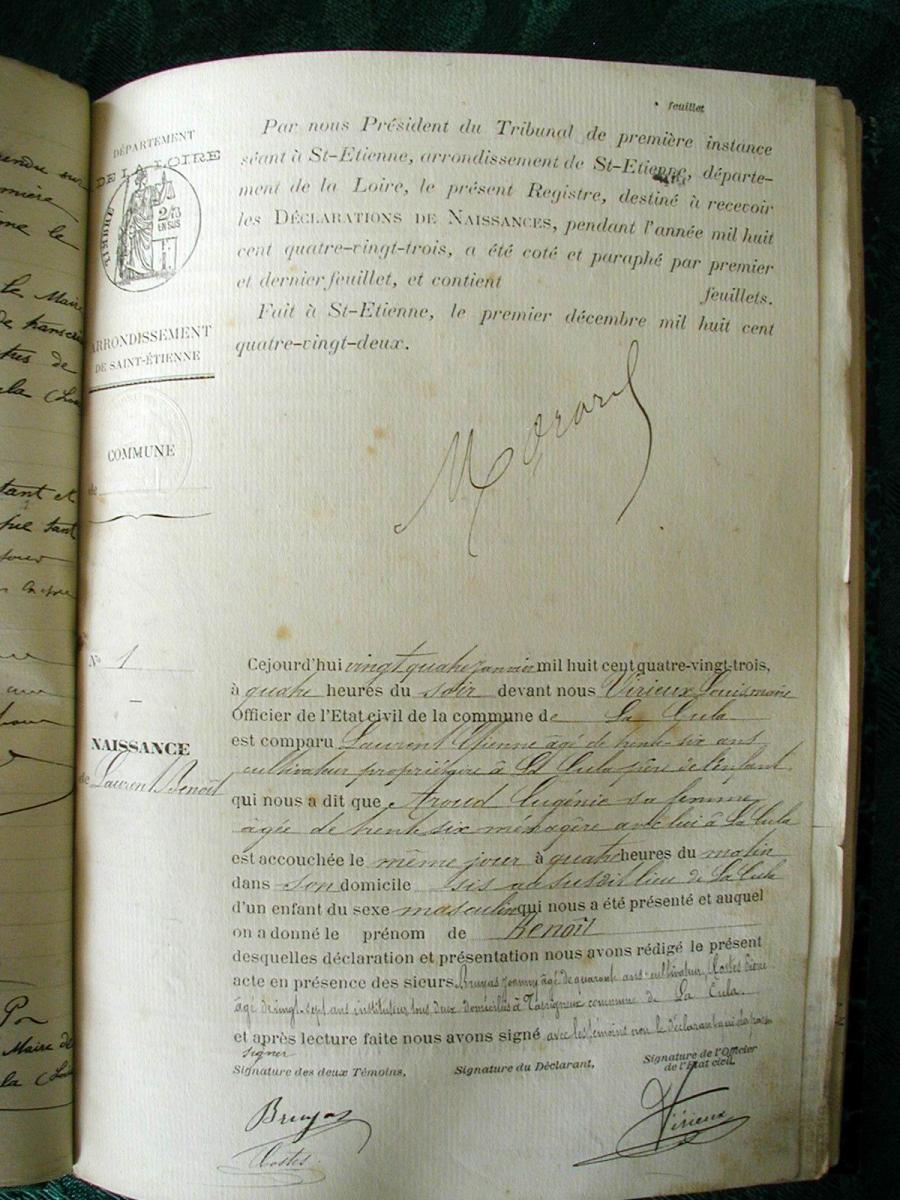 feuillet
Par nous Président du Tribunal de première instance
séant à St-Etienne, arrondissement de St-Etienne, départe-
ment de la Loire, le présent Registre, destiné à recevoir
les DÉCLARATIONS DE NAISSANCES, pendant l'année mil huit
cent quatre-vingt-trois, a été coté et paraphé par premier
et dernier feuillet, et contient feuillets.
Fait à St-Etienne, le premier décembre mil huit cent
quatre-vingt-deux.
DÉPARTEMENT
DE LA LOIRE
TIMBRE
2/3
EN SUS
ARRONDISSEMENT
DE SAINT-ÉTIENNE
COMMUNE
de
N° 1
NAISSANCE
de Laurent Benoît
Cejourd'hui vingt quatre janvier mil huit cent quatre-vingt-trois,
à quatre heures du soir devant nous Virieux Louis maire
Officier de l'Etat civil de la commune de La Cula
est comparu Laurent Etienne âgé de trente-six ans
cultivateur propriétaire à La Cula père de l'enfant
qui nous a dit que Aroud Eugénie sa femme
âgée de trente six ménagère avec lui à La Cula
est accouchée le même jour à quatre heures du matin
dans son domicile sis au susdit lieu de La Cula
d'un enfant du sexe masculin qui nous a été présenté et auquel
on a donné le prénom de Benoît
desquelles déclaration et présentation nous avons rédigé le présent
acte en présence des sieurs Bruyas Joanny âgé de quarante ans cultivateur, Costes
âgé de vingt-sept ans instituteur tous deux domiciliés à commune de La Cula
et après lecture faite nous avons signé avec les témoins non le déclarant
signer
Signature des deux Témoins, Signature du Déclarant, Signature de l'Officier
de l'Etat civil,
Bruyas
Costes
Virieux
tant et
Maire de